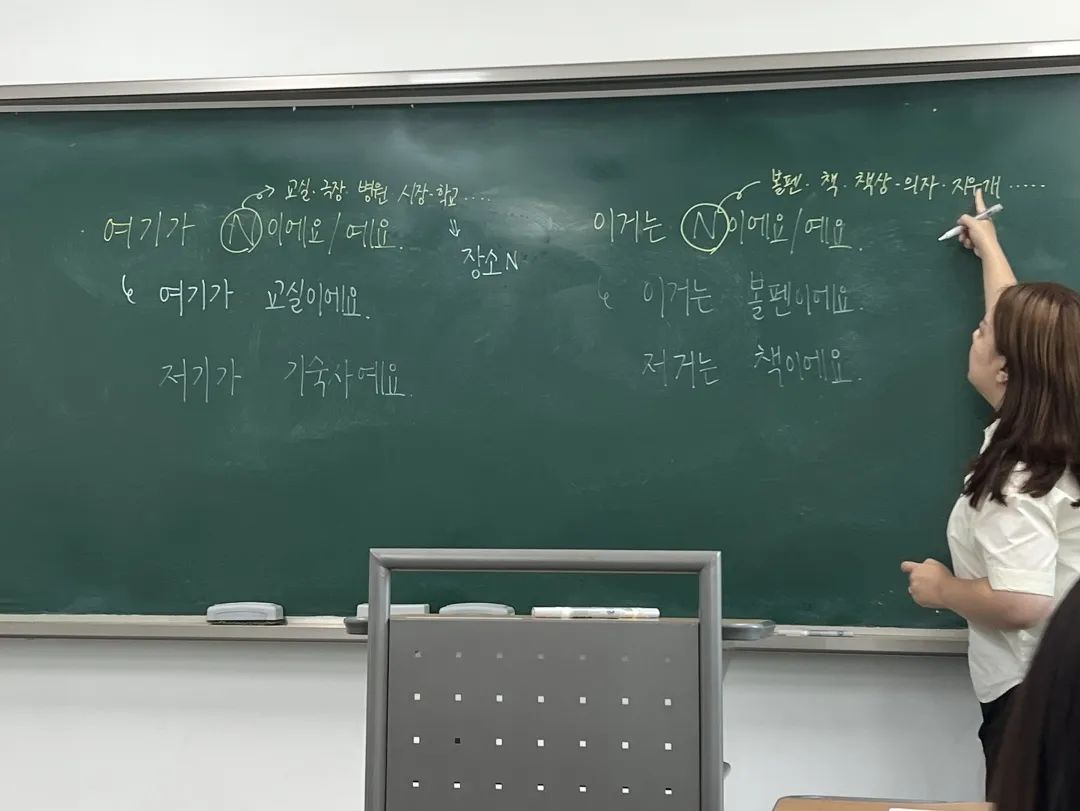 교실·극장·병원·시장·학교....
여기가 N이에요/예요.
장소 N
↳ 여기가 교실이에요.
저기가 기숙사예요.
볼펜·책·책상·의자·지우개.....
이거는 N이에요/예요.
↳ 이거는 볼펜이에요.
저거는 책이에요.